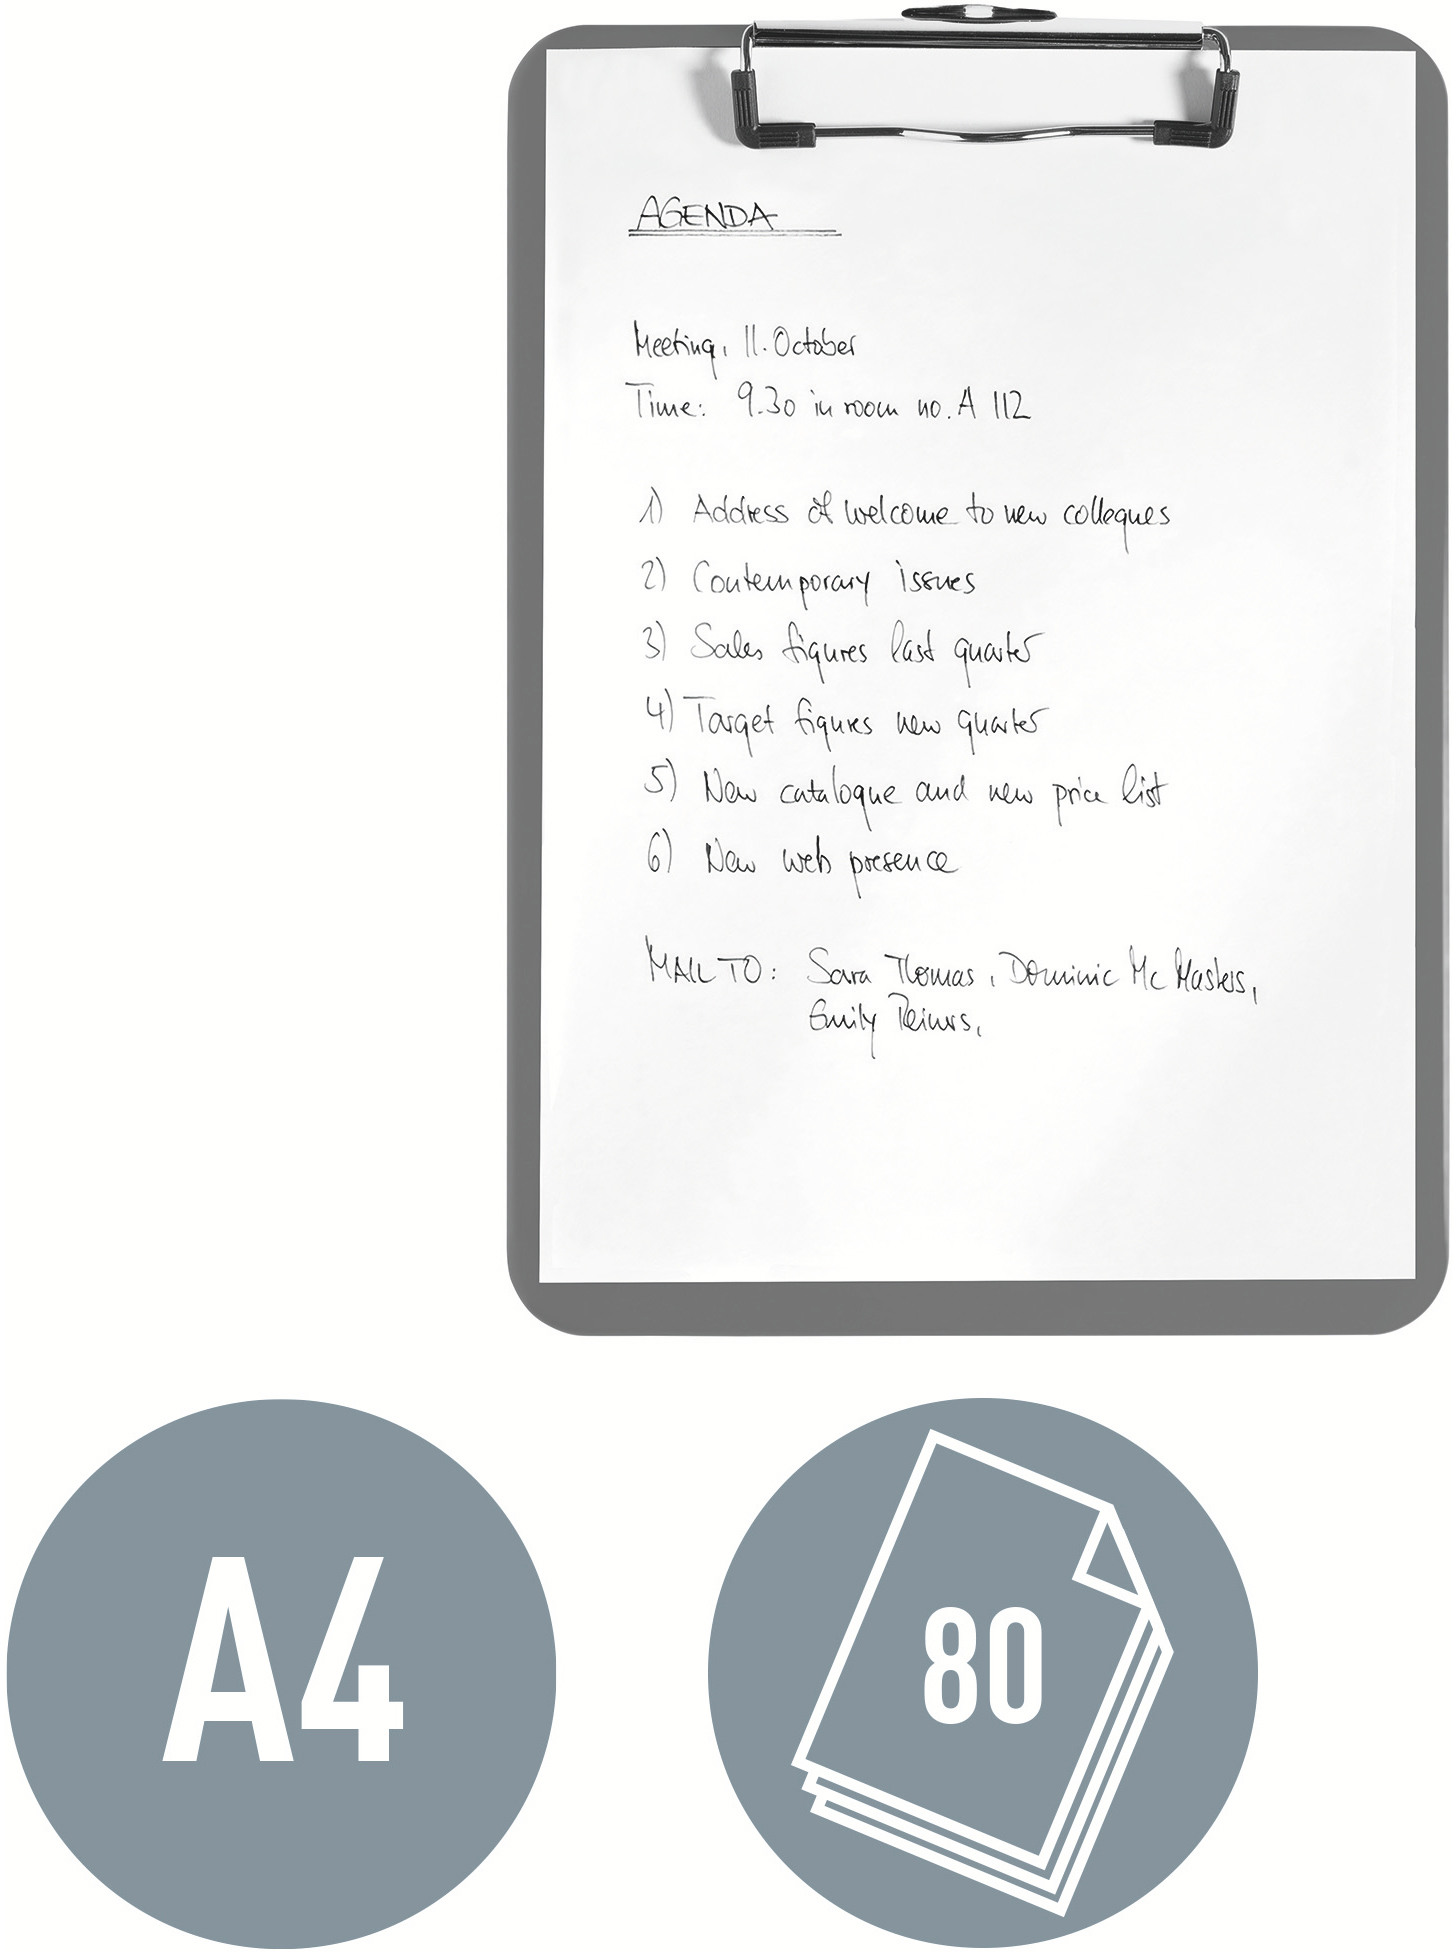 AGENDA
Meeting, 11. October
Time: 9.30 in room no. A 112
1) Address of welcome to new colleques
2) Contemporary issues
3) Sales figures last quarter
4) Target figures new quarter
5) New catalogue and new price list
6) New web presence
MAIL TO: Sara Thomas, Dominic Mc Masters,
Emily
A4
80